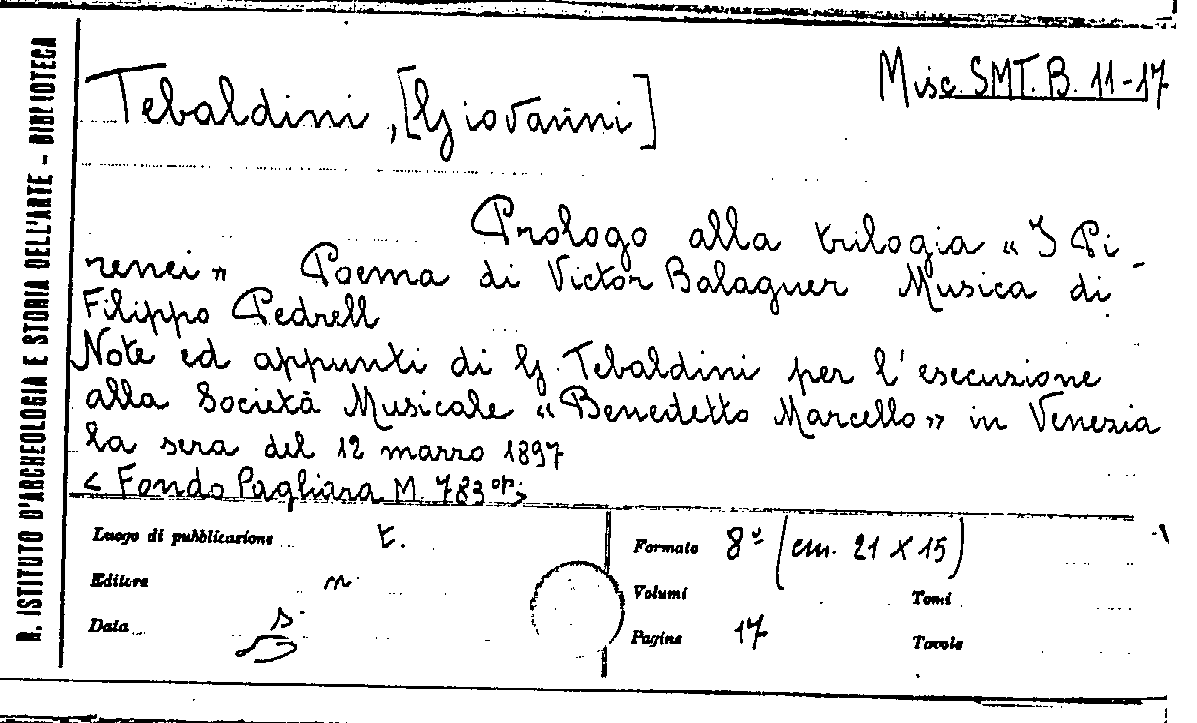 R. ISTITUTO D'ARCHEOLOGIA E STORIA DELL'ARTE - BIBLIOTECA
Misc. SMT. B. 11-17
Tebaldini, [Giovanni]
Prologo alla trilogia « I Pi-
renei » Poema di Victor Balaguer Musica di
Filippo Pedrell
Note ed appunti di G. Tebaldini per l'esecuzione
alla Società Musicale « Benedetto Marcello » in Venezia
la sera del 12 marzo 1897
< Fondo Pagliara M. 783 op. >
Luogo di pubblicazione t.
Editore n.
Data s.
Formato 8º (cm. 21 X 15)
Volumi Tomi
Pagine 17 Tavole